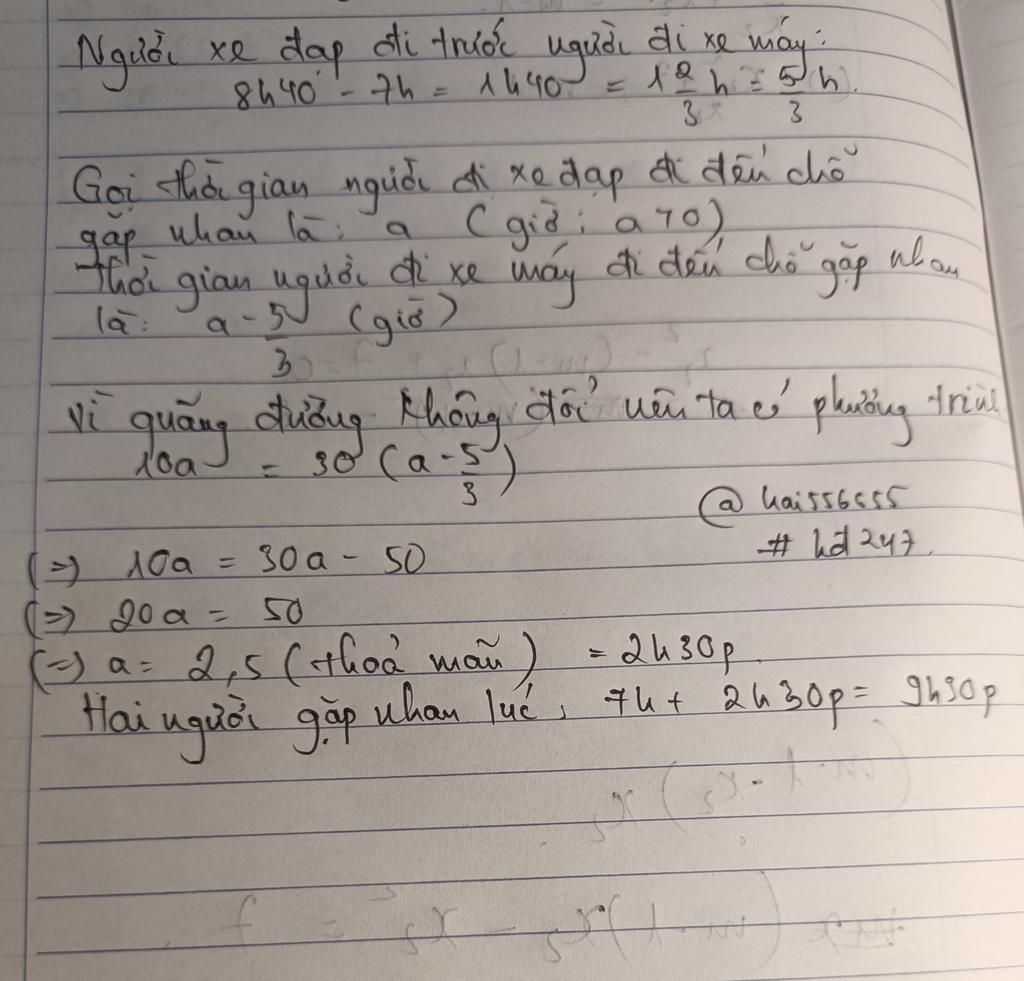 Người xe đạp đi trước người đi xe máy:
8h40' - 7h = 1h40' = 1 2/3 h = 5/3 (h).
Gọi thời gian người đi xe đạp đi đến chỗ
gặp nhau là: a (giờ; a>0)
Thời gian người đi xe máy đi đến chỗ gặp nhau
là: a - 5/3 (giờ)
Vì quãng đường không đổi nên ta có phương trình
10a = 30 (a - 5/3)
@hai556655
# hd247.
(=) 10a = 30a - 50
(=) 20a = 50
(=) a = 2,5 (thoả mãn) = 2h30p.
Hai người gặp nhau lúc: 7h + 2h30p = 9h30p